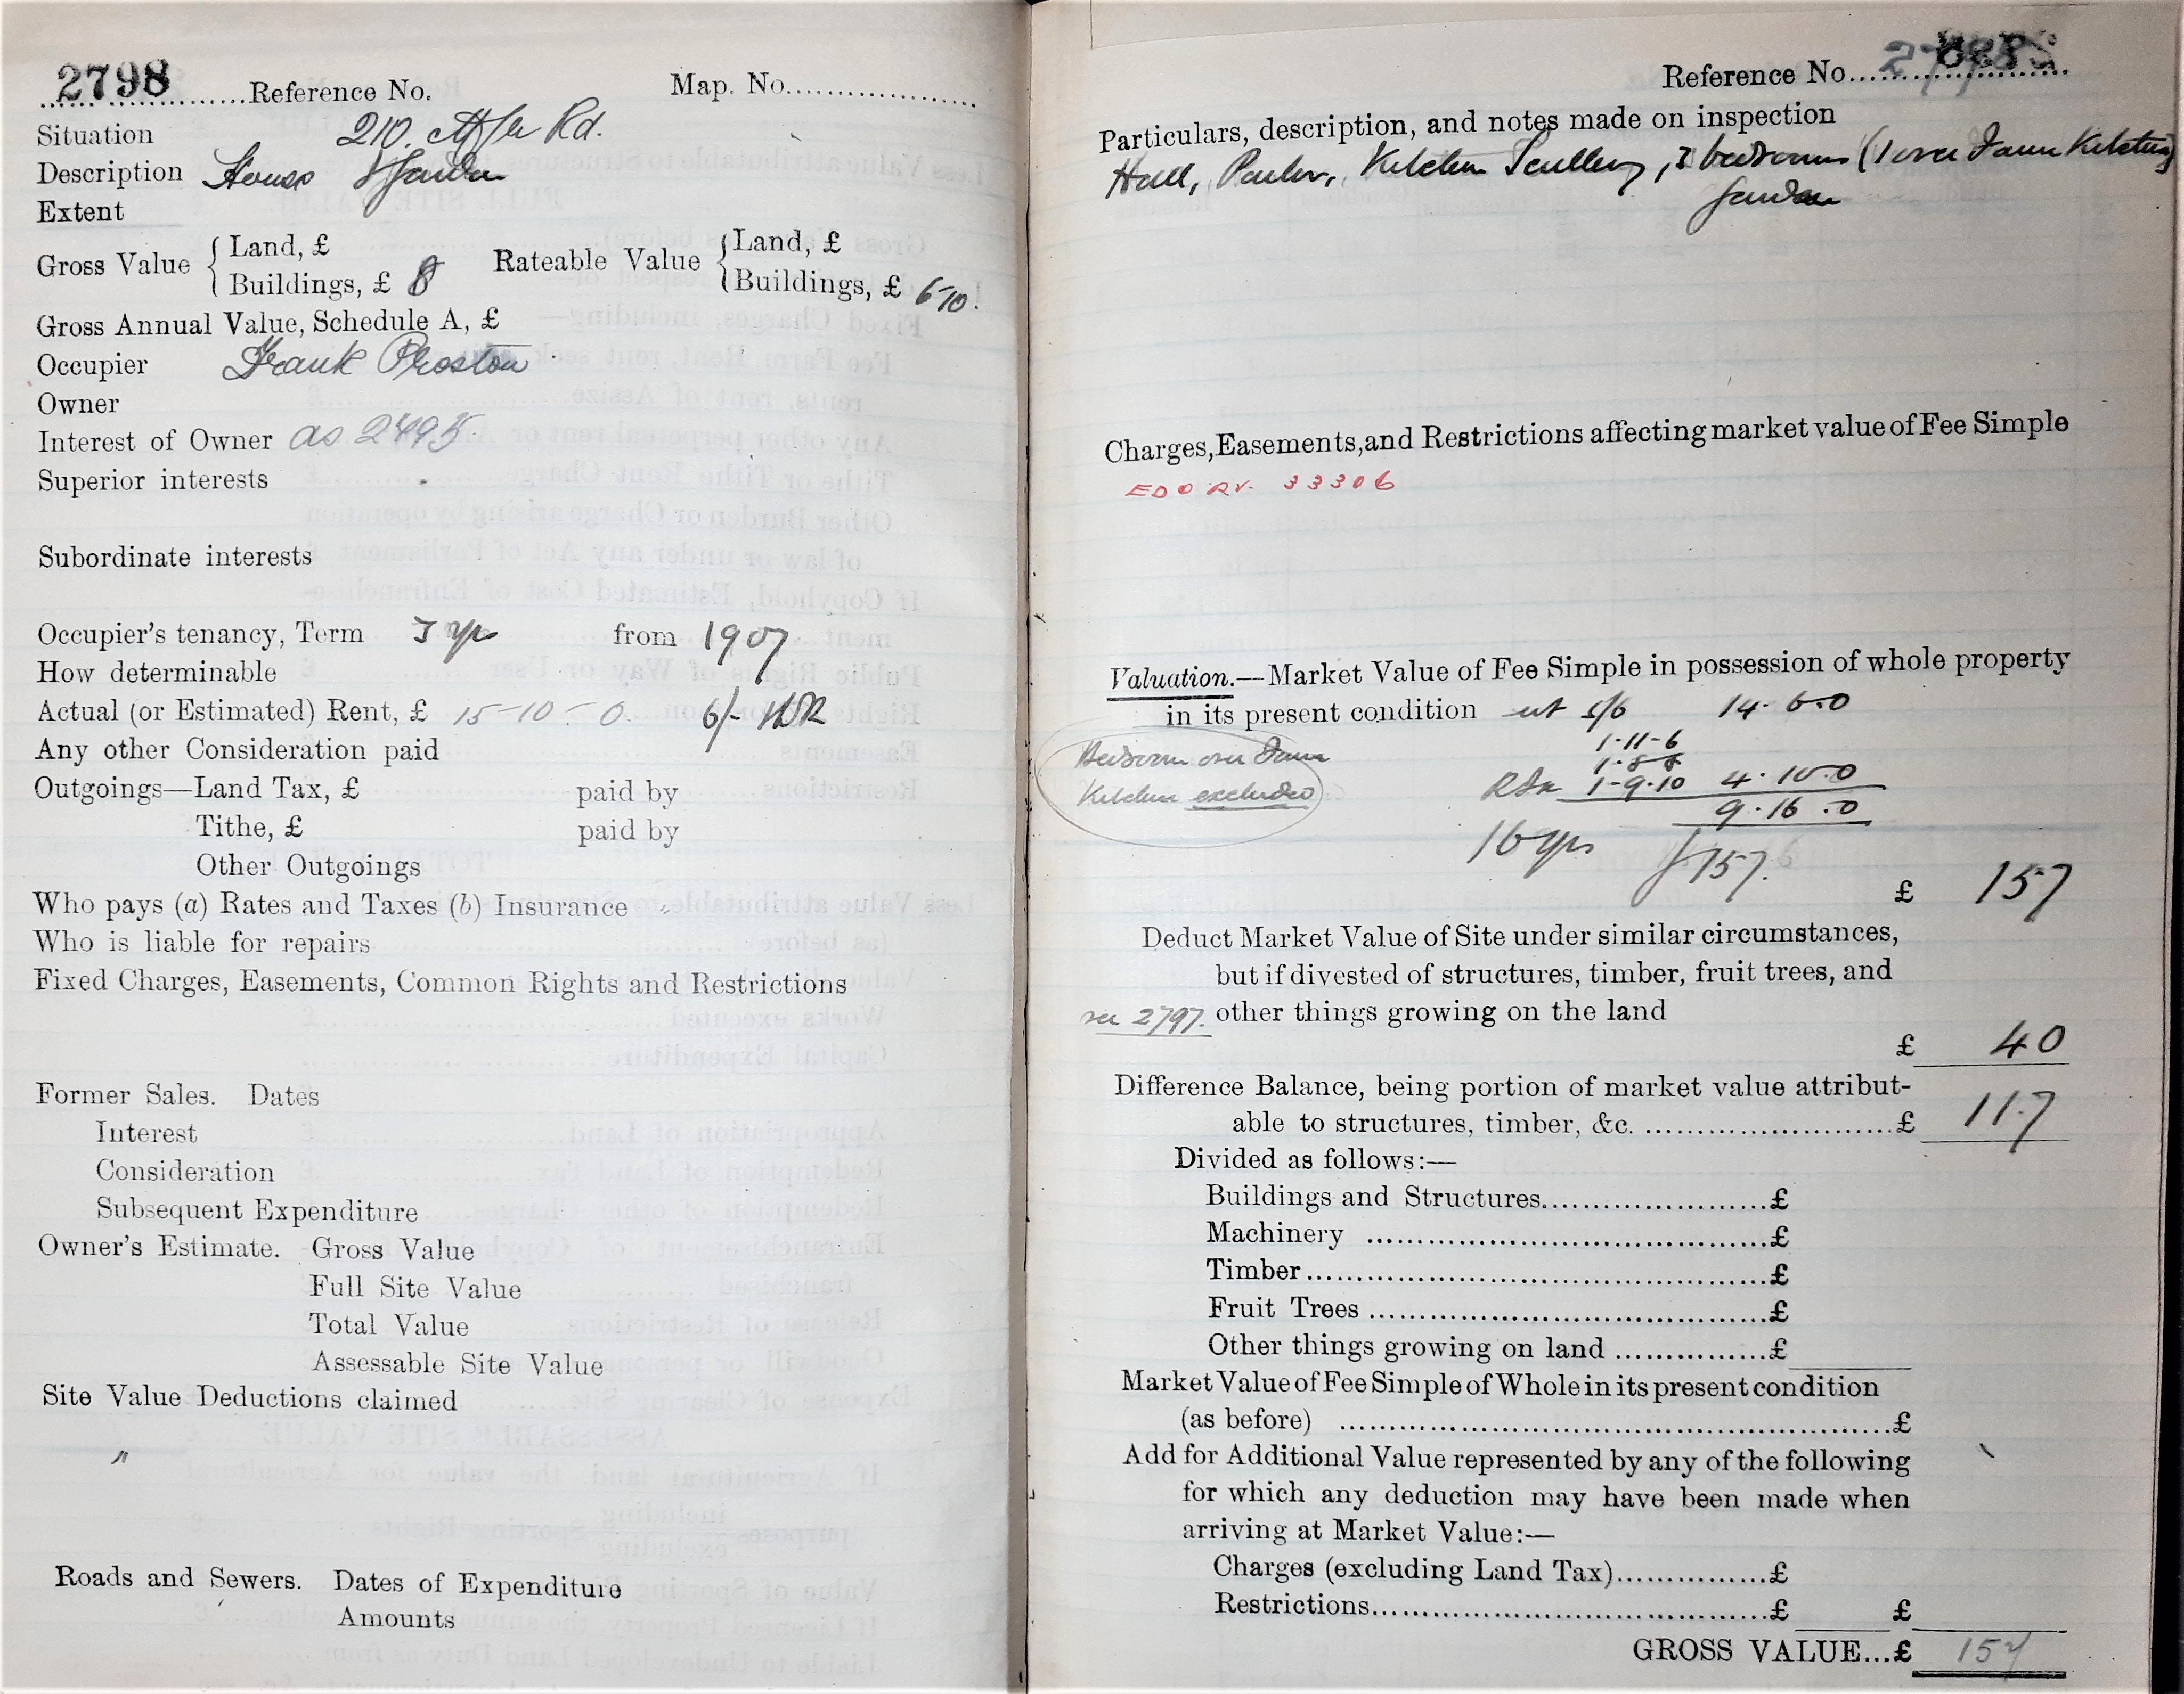 2798 Reference No. Map. No.
Situation 210. Rd.
Description House & Garden
Extent
Gross Value { Land, £ Rateable Value { Land, £
Buildings, £ 8 Buildings, £ 6-10.
Gross Annual Value, Schedule A, £
Occupier Frank Preston
Owner
Interest of Owner as 2495
Superior interests
Subordinate interests
Occupier's tenancy, Term 3 yrs from 1907
How determinable
Actual (or Estimated) Rent, £ 15-10-0. 6/-
Any other Consideration paid
Outgoings—Land Tax, £ paid by
Tithe, £ paid by
Other Outgoings
Who pays (a) Rates and Taxes (b) Insurance
Who is liable for repairs
Fixed Charges, Easements, Common Rights and Restrictions
Former Sales. Dates
Interest
Consideration
Subsequent Expenditure
Owner's Estimate. Gross Value
Full Site Value
Total Value
Assessable Site Value
Site Value Deductions claimed
"
Roads and Sewers. Dates of Expenditure
Amounts
Reference No. 2798
Particulars, description, and notes made on inspection
Hall, Parlor, Kitchen Scullery, 3 bedrooms (1 over Kitchen)
Garden
Charges, Easements, and Restrictions affecting market value of Fee Simple
EDO RV. 33306
Valuation.—Market Value of Fee Simple in possession of whole property
in its present condition at 5/6 14. 6.0
1-11-6
Bedroom over
Kitchen excluded
1-9-10 4.10.0
9.16.0
16 yrs £157.
£ 157
Deduct Market Value of Site under similar circumstances,
but if divested of structures, timber, fruit trees, and
see 2797. other things growing on the land
£ 40
Difference Balance, being portion of market value attribut-
able to structures, timber, &c. £ 117
Divided as follows:—
Buildings and Structures £
Machinery £
Timber £
Fruit Trees £
Other things growing on land £
Market Value of Fee Simple of Whole in its present condition
(as before) £
Add for Additional Value represented by any of the following
for which any deduction may have been made when
arriving at Market Value:—
Charges (excluding Land Tax) £
Restrictions £ £
GROSS VALUE...£ 157